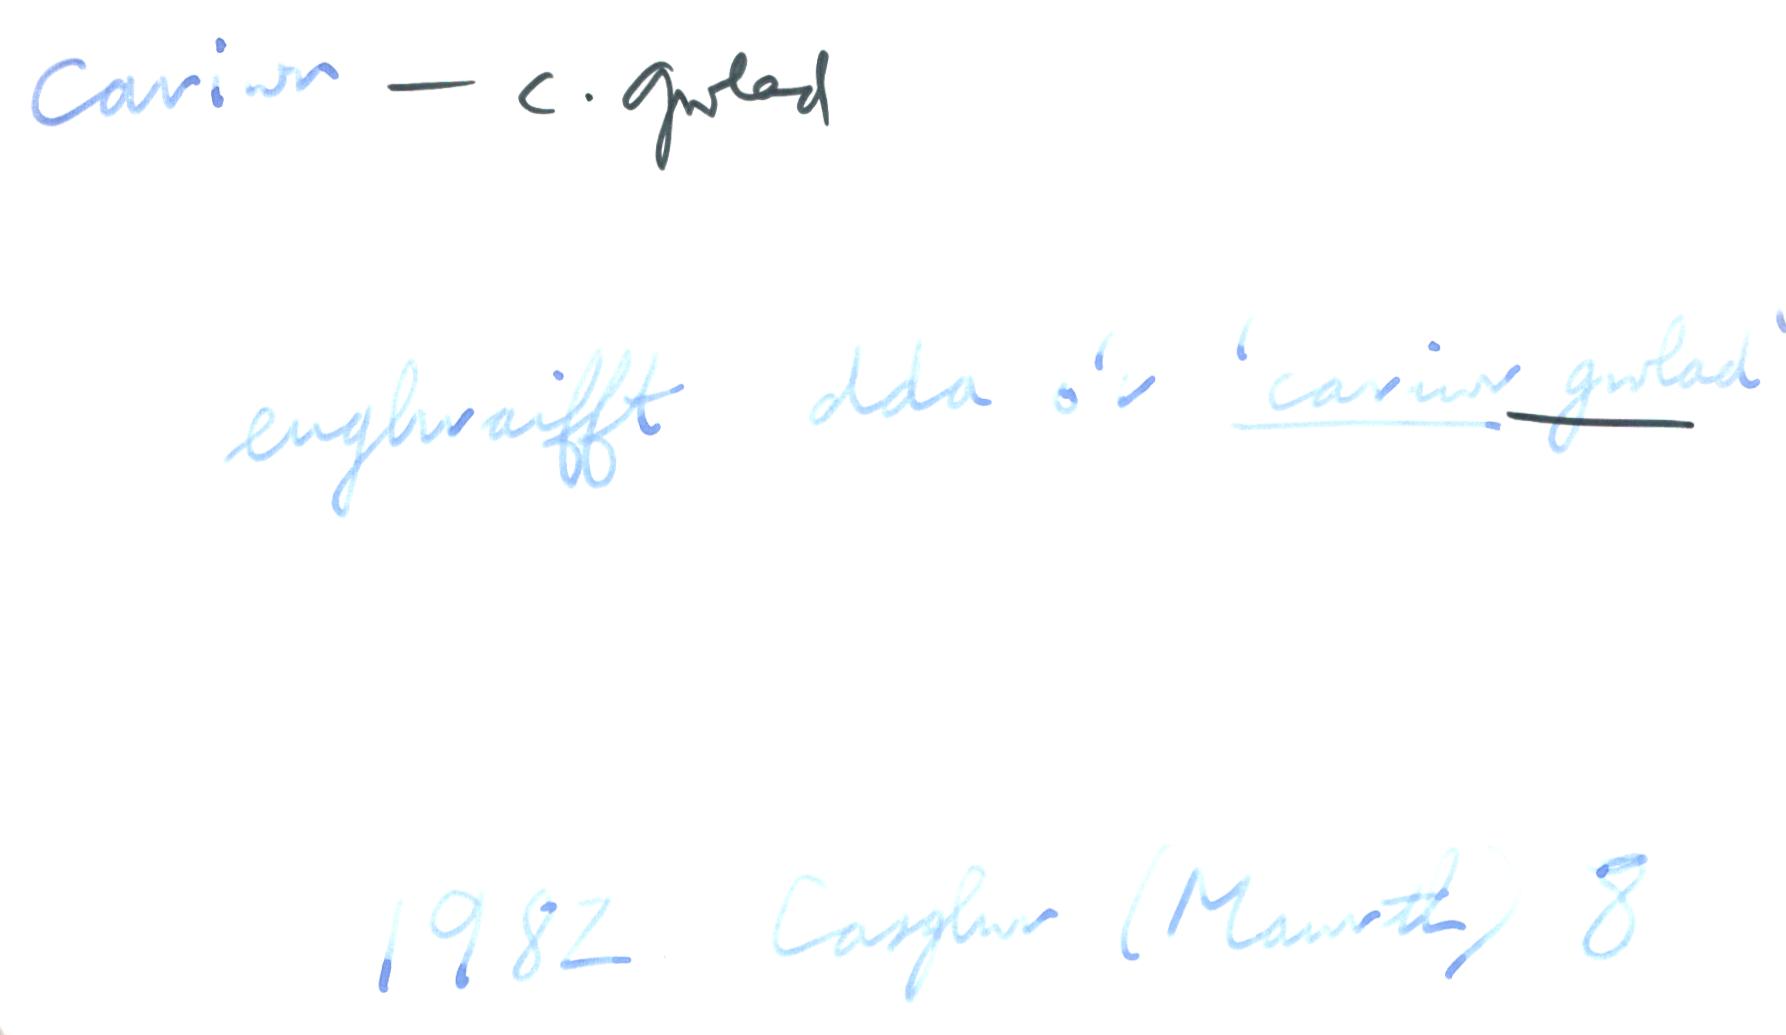 cariwr — c. gwlad
enghraifft dda o'r 'cariwr gwlad'
1982 Casglwr (Mawrth) 8